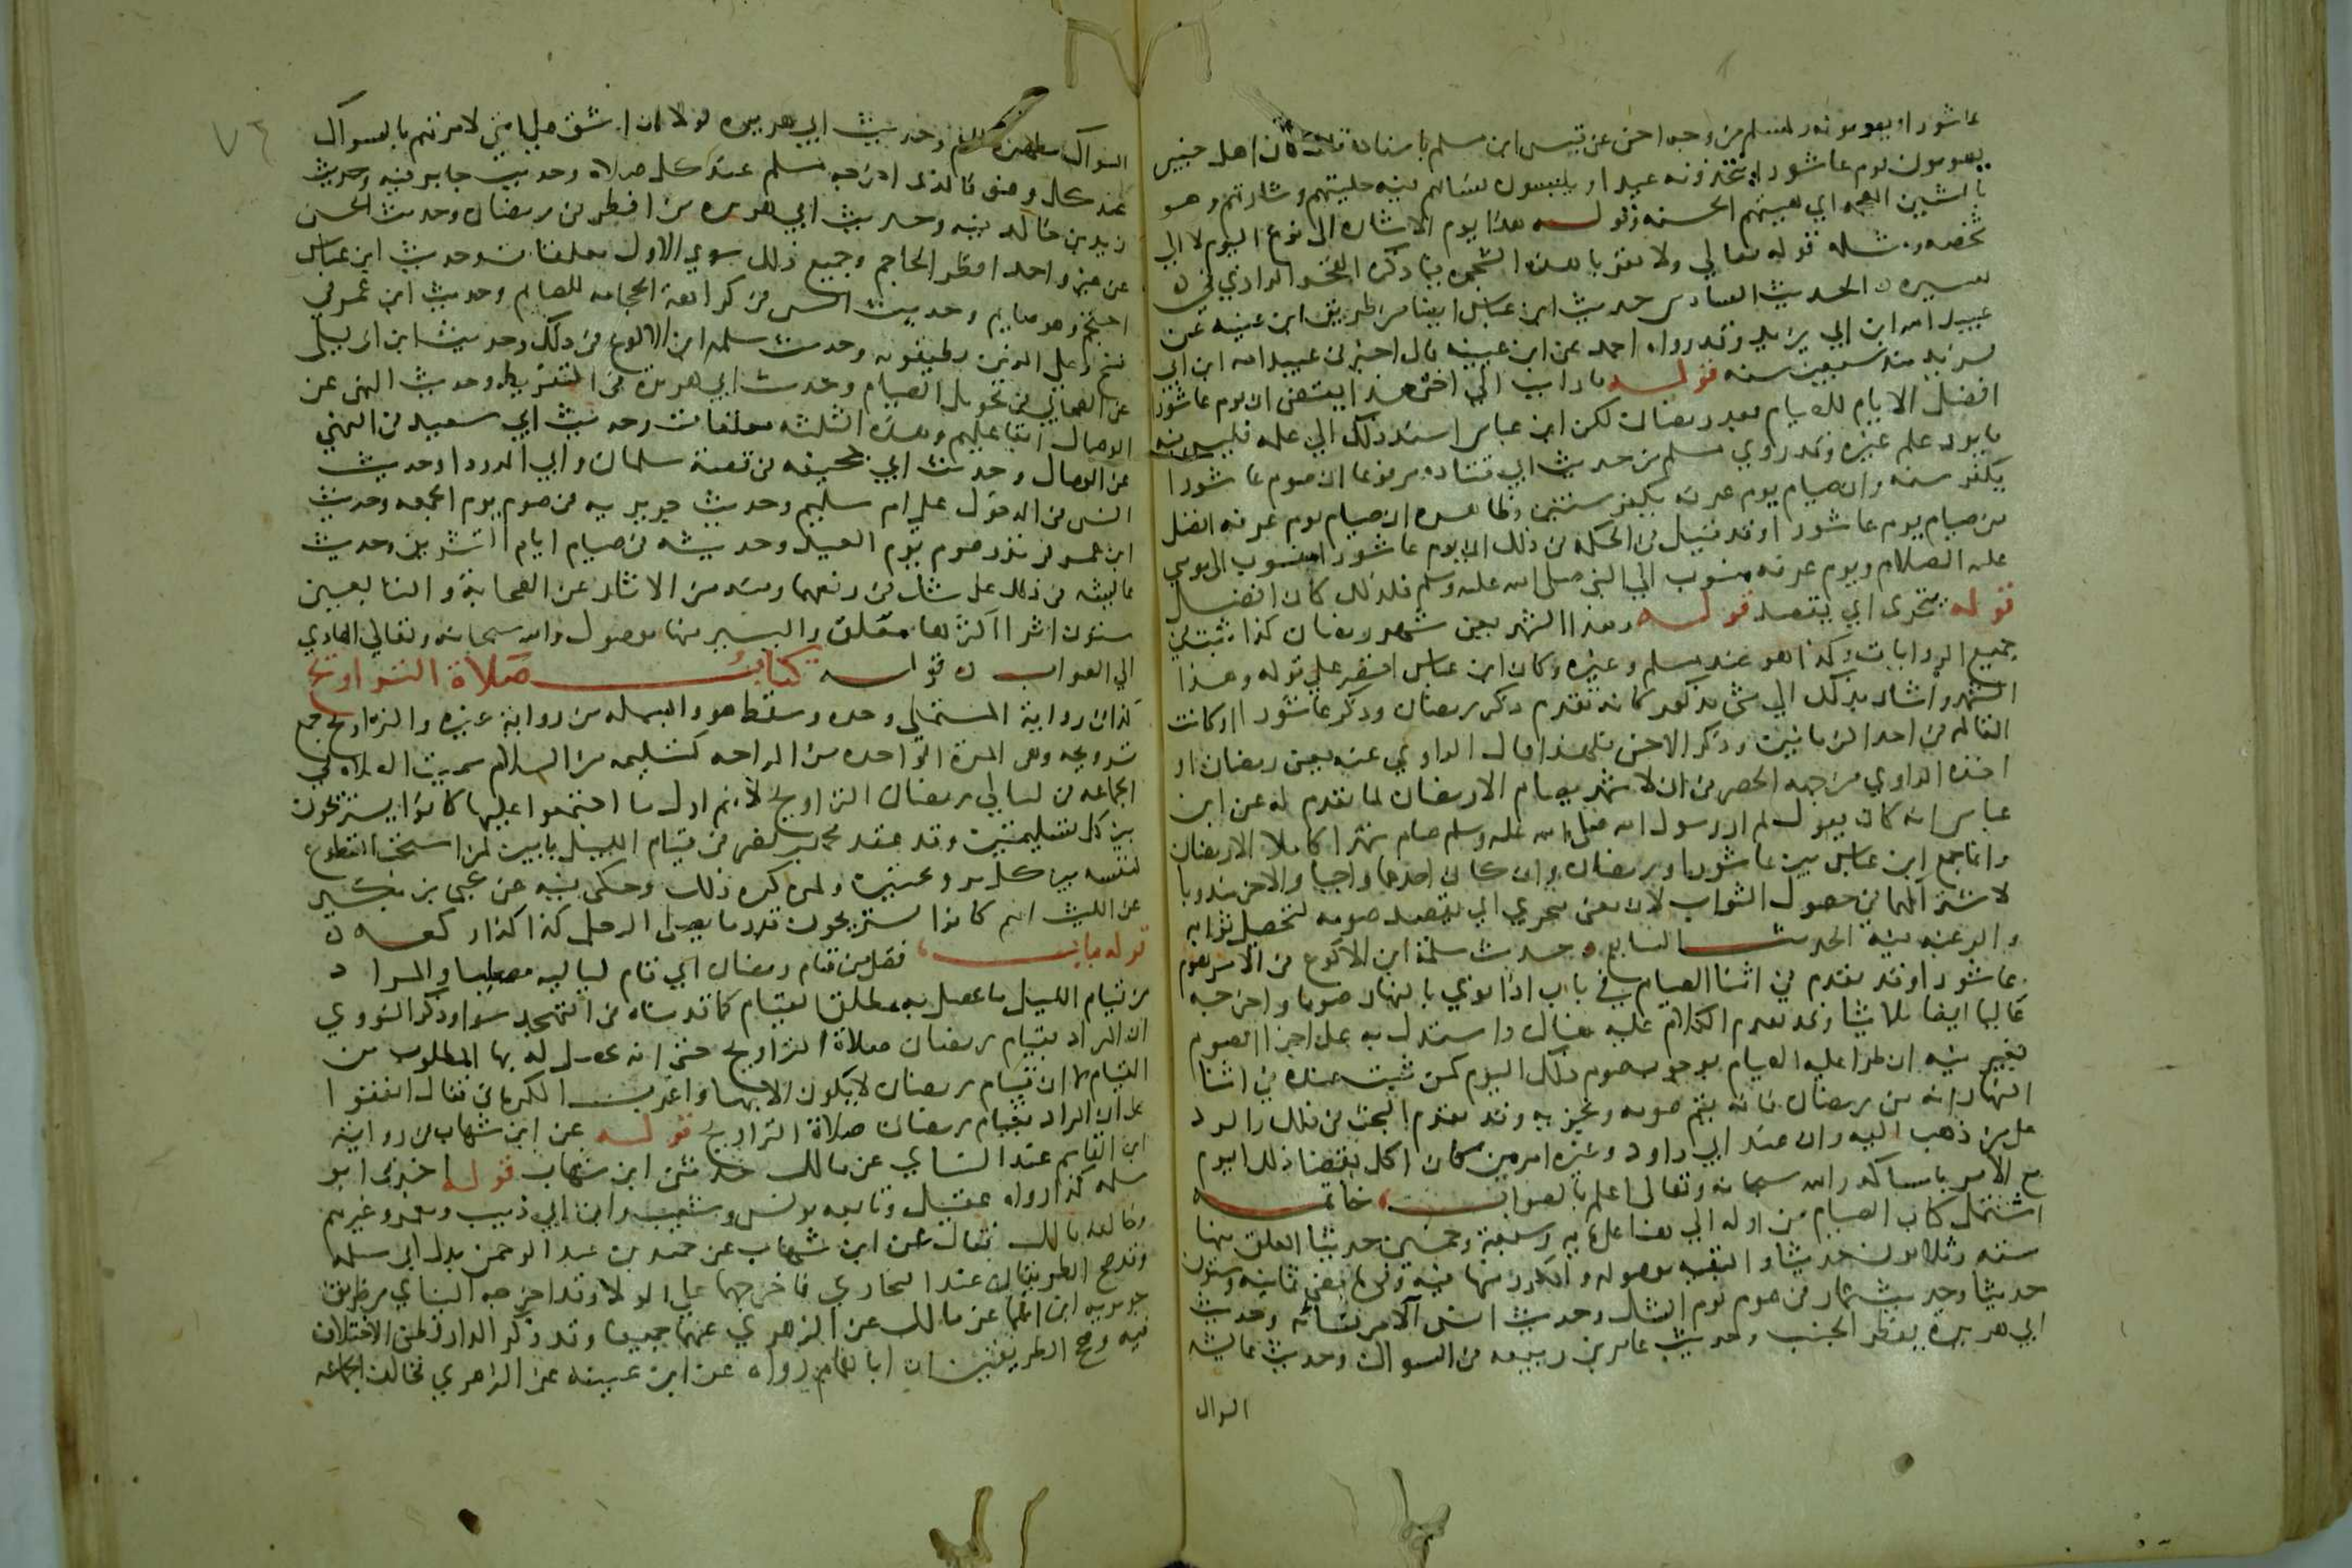 عاشورا يصومونه ولمسلم من وجه اخر عن قيس ابن مسلم باسناده قال كان اهل خيبر
يصومون يوم عاشورا يتخذونه عيدا ويلبسون نساءهم فيه حليهم وشارتهم وهو
بالشين المعجمه اي هيئتهم الحسنه وقوله هذا يوم الاشاره الى نوع اليوم لا الي
شخصه ومثله قوله تعالي ولا تقربا هذه الشجره فيما ذكره الفخر الرازي في
تفسيره الحديث السادس حديث ابن عباس ايضا من طريق ابن عيينه عن
عبيد الله ابن ابي يزيد وقد رواه احمد عن ابن عيينه قال اخبرني عبيد الله ابن ابي
يزيد منذ سبعين سنه قوله ما رايت الي اخره هذا يقتضي ان يوم عاشورا
افضل الايام للصيام بعد رمضان لكن ابن عباس اسند ذلك الي علمه فليس فيه
ما يرد علم غيره وقد روي مسلم من حديث ابي قتاده مرفوعا ان صوم عاشورا
يكفر سنه وان صيام يوم عرفه يكفر سنتين وظاهره ان صيام يوم عرفه افضل
من صيام يوم عاشورا وقد قيل في الحكمه في ذلك ان يوم عاشورا منسوب الى موسي
عليه السلام ويوم عرفه منسوب الي النبي صلى الله عليه وسلم فلذلك كان افضل
قوله يتحرى اي يقصد قوله وهذا الشهر يعني شهر رمضان كذا ثبت في
جميع الروايات وكذا هو عند مسلم وغيره وكان ابن عباس اقتصر علي قوله وهذا
الشهر واشار بذلك الي شي مذكور كانه تقدم ذكر رمضان وذكر عاشورا او كانت
المقاله في احد الزمانين وذكر الاخر فلهذا قال الراوي عنه يعني رمضان او
اخذه الراوي من جهه الحصر في ان لا شهر يصام الا رمضان لما تقدم له عن ابن
عباس انه كان يقول لم ار رسول الله صلى الله عليه وسلم صام شهرا كاملا الا رمضان
وانما جمع ابن عباس بين عاشورا ورمضان وان كان احدهما واجبا والاخر مندوبا
لاشتراكهما في حصول الثواب لان معنى يتحري اي يقصد صومه لتحصيل ثوابه
والرغبه فيه الحديث السابع حديث سلمة ابن الاكوع في الامر بصوم
عاشورا وقد تقدم في اثنا الصيام في باب اذا نوي بالنهار صوما واخرجه
عاليا ايضا ثلاثيا وقد تقدم الكلام عليه هناك واستدل به على اجزا الصوم
بغير نيه لمن طرا عليه العلم بوجوب صوم ذلك اليوم كمن ثبت عنده في اثنا
النهار انه من رمضان فانه يتم صومه ويجزيه وقد تقدم البحث في ذلك والرد
على من ذهب اليه وان عند ابي داود وغيره امر من كان اكل بقضا ذلك اليوم
مع الامر بامساكه والله سبحانه وتعالى اعلم بالصواب خاتمه
اشتمل كتاب الصيام من اوله الي هنا على مايه وسبعة وخمسين حديثا المعلق منها
سته وثلاثون حديثا والبقيه موصوله والمكرر منها فيه وفيما مضى ثمانيه وستون
حديثا وحديث عمار في صوم يوم الشك وحديث انس آلا من نسائه وحديث
ابي هريرة يفطر الجنب وحديث عامر بن ربيعه في السواك وحديث عايشه
السواك
٧٤
السواك مطهرة للفم وحديث ابي هريره لولا ان اشق على امتي لامرتهم بالسواك
عند كل وضو فالذي اخرجه مسلم عند كل صلاه وحديث جابر فيه وحديث
زيد بن خالد فيه وحديث ابي هريره من افطر في رمضان وحديث الحسن
عن غير واحد افطر الحاجم وجميع ذلك سوي الاول معلقات وحديث ابن عباس
احتجم وهو صايم وحديث انس في كراهة الحجامه للصايم وحديث ابن عمر في
نسخ وعلي الذين يطيقونه وحديث سلمه ابن الاكوع في ذلك وحديث ابن ابي ليلى
عن الصحابي في تحويل الصيام وحديث ابي هريره في التفريط وحديث النهي عن
الوصال ابقا عليهم وهذه الثلثه معلقات وحديث ابي سعيد في النهي
عن الوصال وحديث ابي جحيفه في قصة سلمان وابي الدردا وحديث
انس في الدخول علي ام سليم وحديث جويريه في صوم يوم الجمعه وحديث
ابن عمر في نذر صوم يوم العيد وحديثه في صيام ايام التشريق وحديث
عايشه في ذلك على شك في رفعهما وفيه من الاثار عن الصحابة والتابعين
ستون اثرا اكثرها معلق واليسير منها موصول والله سبحانه وتعالي الهادي
الي الصواب قوله كتاب صلاة التراويح
كذا في رواية المستملي وحده وسقط هو والبسمله من رواية غيره والتراويح جمع
ترويحه وهي المرة الواحده من الراحه كتسليمه من السلام سميت الصلاه في
الجماعه في ليالي رمضان التراويح لانهم اول ما اجتمعوا عليها كانوا يستريحون
بين كل تسليمتين وقد عقد محمد بن نصر في قيام الليل بابين لمن استحب التطوع
لنفسه بين كل ترويحتين ولمن كره ذلك وحكى فيه عن يحيى بن بكير
عن الليث انهم كانوا يستريحون قدر ما يصلي الرجل كذا كذا ركعه
قوله باب فضل من قام رمضان اي قام لياليه مصليا والمراد
من قيام الليل ما يحصل به مطلق القيام كما قدمناه في التهجد سوا وذكر النووي
ان المراد بقيام رمضان صلاة التراويح يعني انه يحصل له بها المطلوب من
القيام لا ان قيام رمضان لا يكون الا بها واغرب الكرماني فقال اتفقوا
على ان المراد بقيام رمضان صلاة التراويح قوله عن ابن شهاب في رواية
ابن القاسم عند النساي عن مالك حدثني ابن شهاب قوله اخبرني ابو
سلمه كذا رواه عقيل وتابعه يونس وشعيب وابن ابي ذيب ومعمر وغيرهم
وخالفه مالك فقال عن ابن شهاب عن حميد بن عبد الرحمن بدل ابي سلمه
وقد صح الطريقان عند البخاري فاخرجهما علي الولا وقد اخرجه النساي من طريق
جويريه ابن اسما عن مالك عن الزهري عنهما جميعا وقد ذكر الدارقطني الاختلاف
فيه وصحح الطريقين ان ابا همام رواه عن ابن عيينه عن الزهري فخالف الجماعه